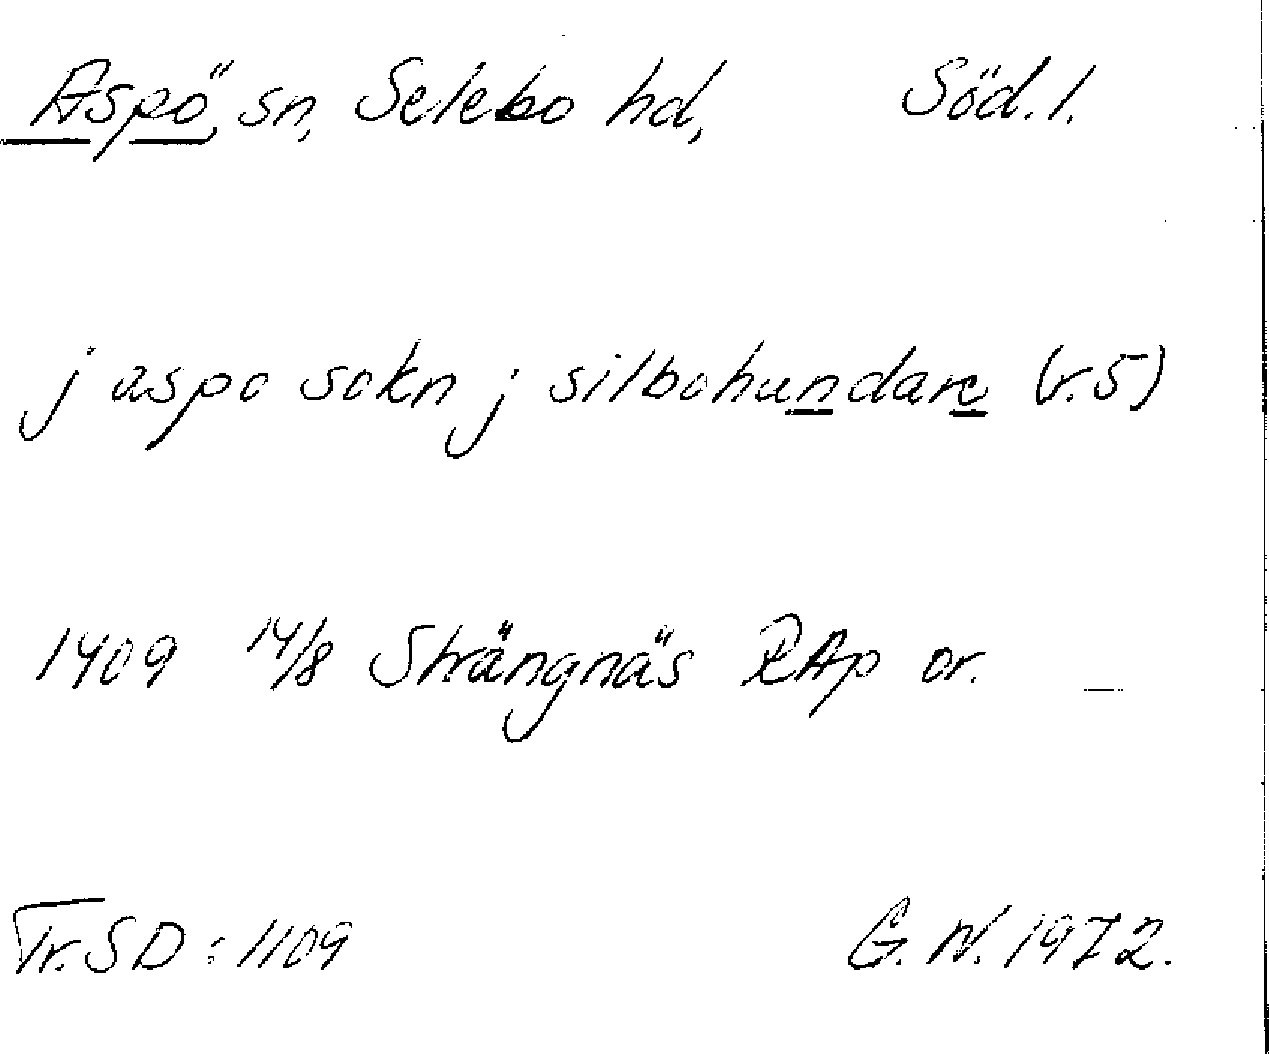 Aspö, sn, Selebo hd, Söd. l.
j aspo sokn j silbohundare (r. 5)
1409 14/8 Strängnäs RAp or. _
Tr. SD : 1109 G. W. 1972.